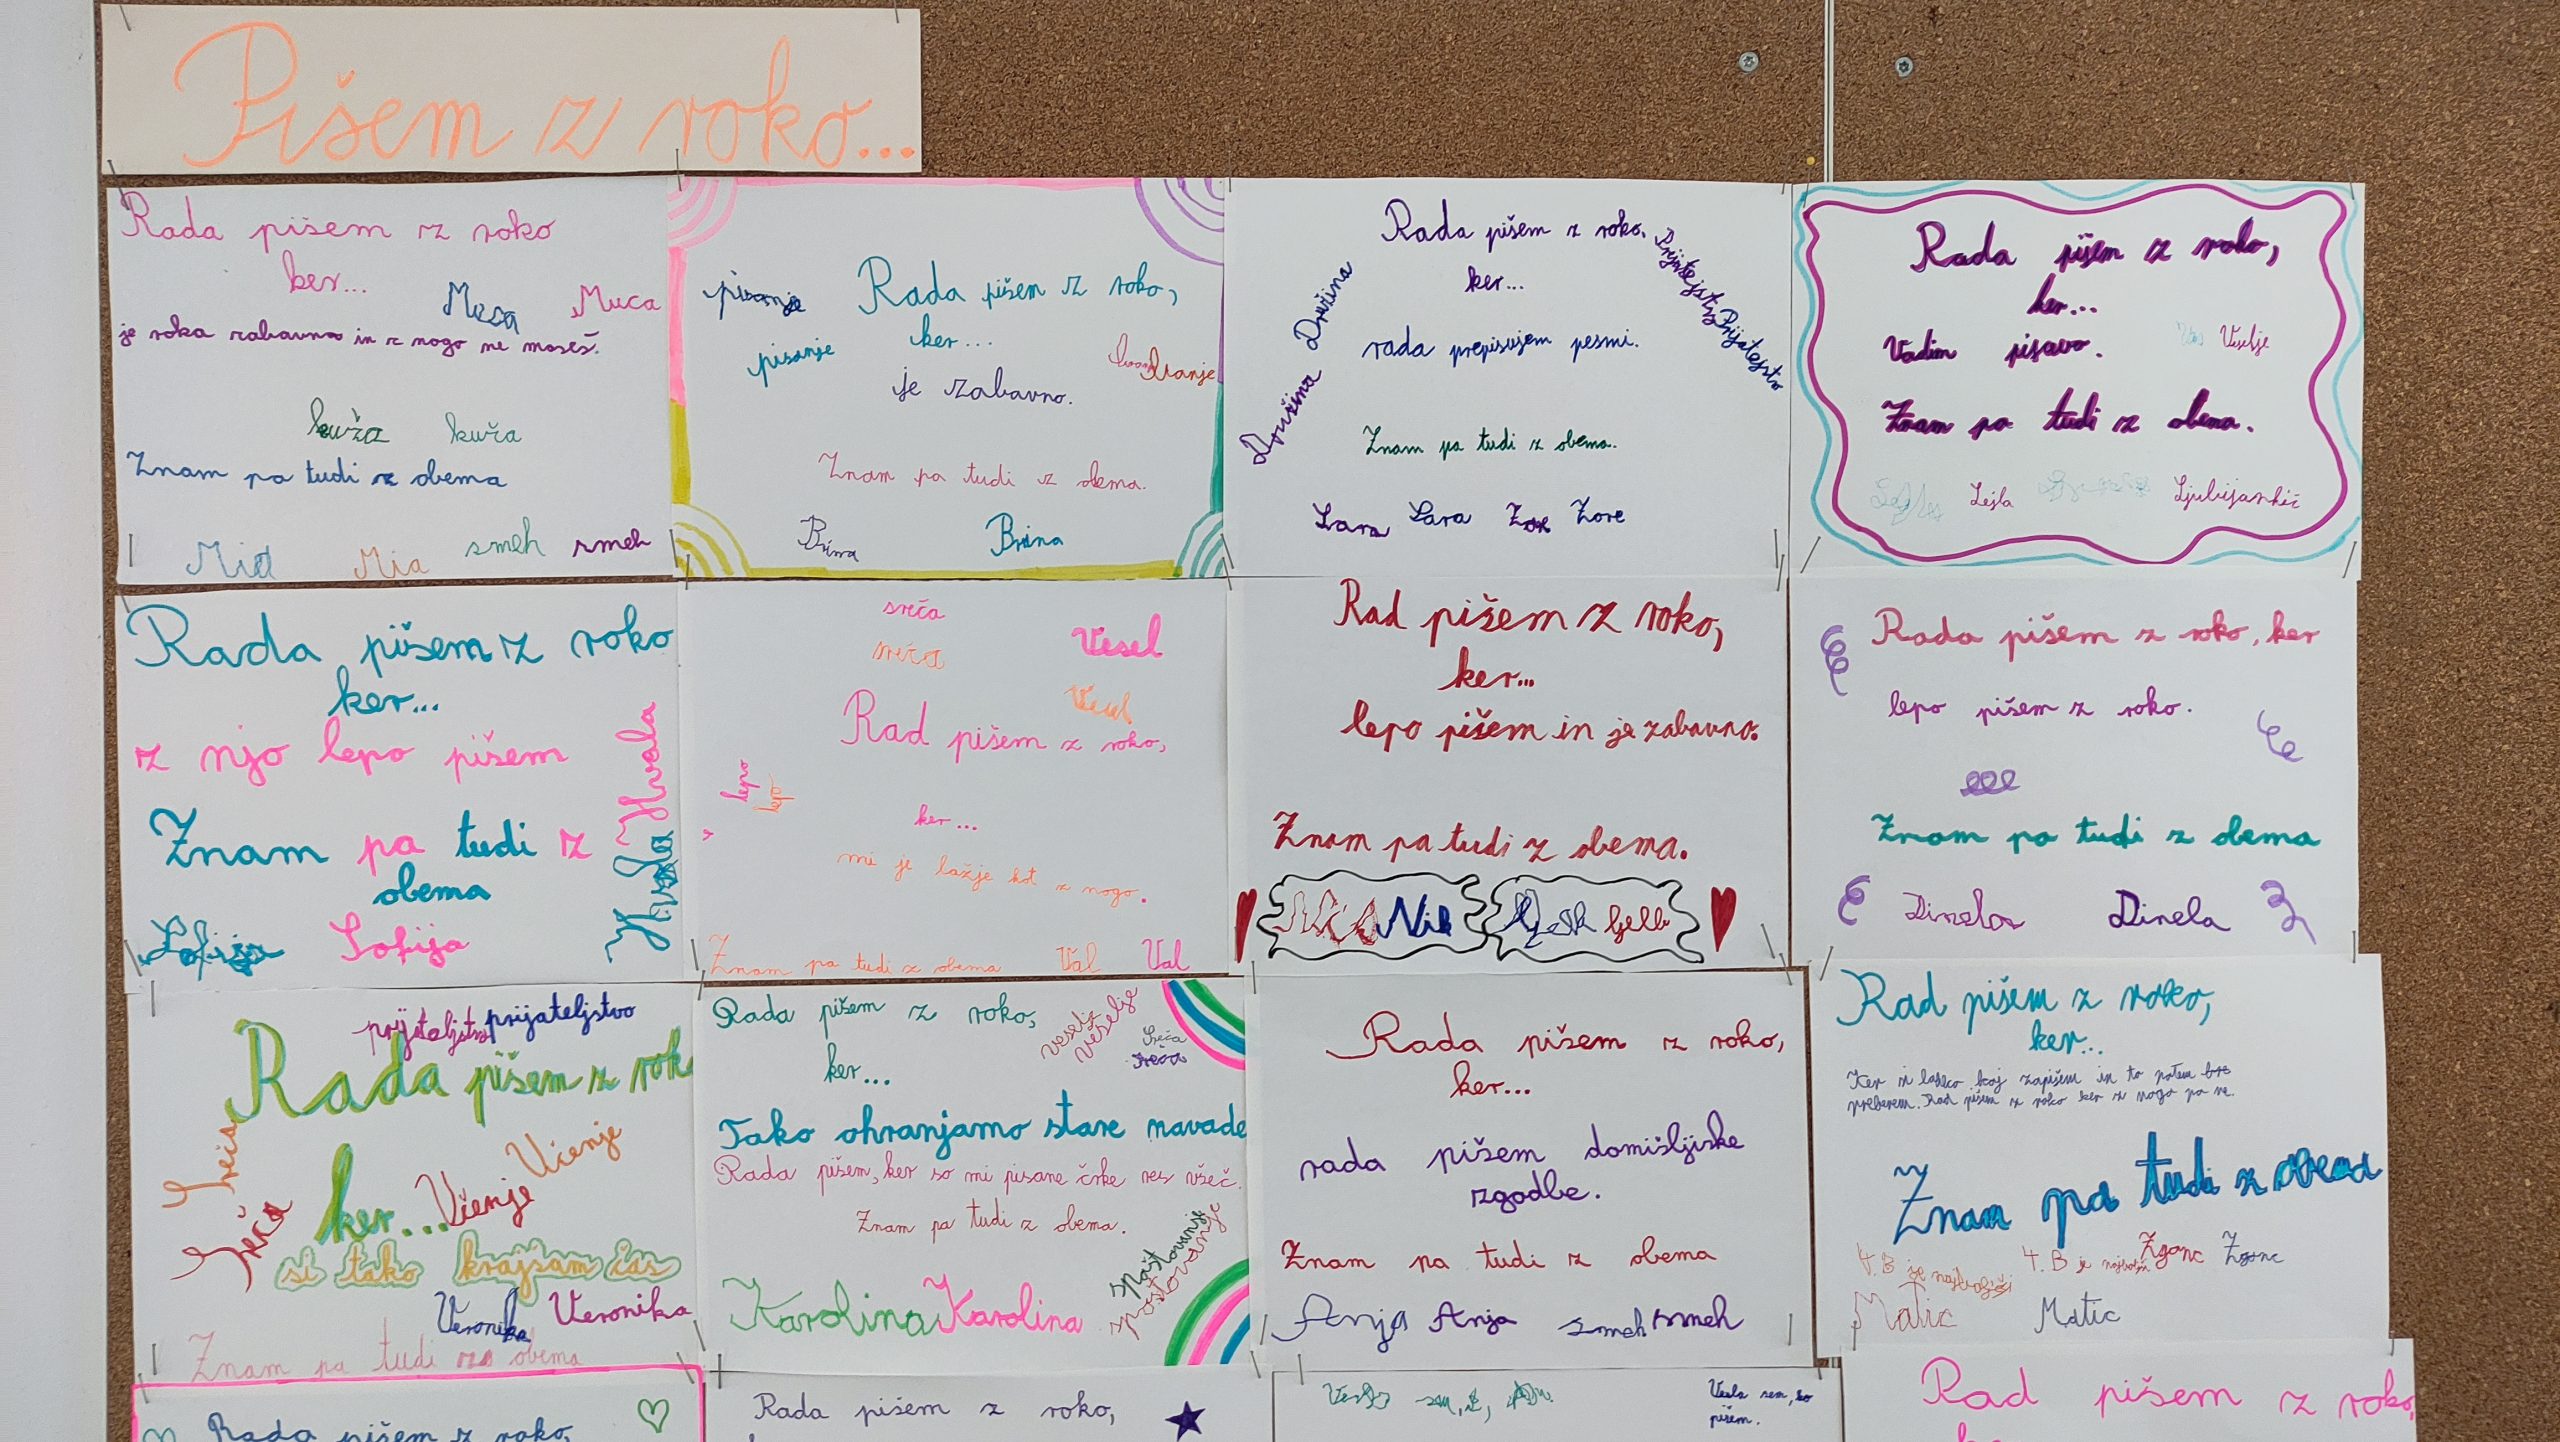 Pišem z roko...
Rada pišem z roko
ker...
Musa Muca
je roka zabavna in z nogo ne moreš.
kuža kuža
Znam pa tudi z obema
smeh smeh
Mia Mia
pisanje
Rada pišem z roko,
pisanje
ker...
je zabavno.
Znam pa tudi z obema.
Brina Brina
Rada pišem z roko.
ker...
Družina
Družina
Prijateljstvo
rada prepisujem pesmi.
Znam pa tudi z obema.
Lara Lara Zore Zore
Rada pišem z roko,
ker...
Veselje
Vadim pisavo.
Znam pa tudi z obema.
Lejla Ljubijankić
Rada pišem z roko
ker...
z njo lepo pišem
Znam pa tudi z
obema
Sofija Sofija
Hvala
Hvala
sreča
sreča
Vesel
Vesel
Rad pišem z roko,
lepo
lepo
ker...
mi je lažje kot z nogo.
Znam pa tudi z obema Val Val
Rad pišem z roko,
ker...
lepo pišem in je zabavno.
Znam pa tudi z obema.
Nik Nik
Rada pišem z roko, ker
lepo pišem z roko.
Znam pa tudi z obema
Dinela Dinela
prijateljstvo prijateljstvo
Rada pišem z roko
Sreča
Sreča
ker...
Učenje
Učenje
si tako krajšam čas
Veronika Veronika
Znam pa tudi z obema
Rada pišem z roko,
ker...
veselje
veselje
Sreča
sreča
Tako ohranjamo stare navade
Rada pišem, ker so mi pisane črke res všeč.
Znam pa tudi z obema.
spoštovanje
spoštovanje
Karolina Karolina
Rada pišem z roko,
ker...
rada pišem domišljijske
zgodbe.
Znam pa tudi z obema
Anja Anja smeh smeh
Rad pišem z roko,
ker...
Ker si lahko kaj zapišem in to potem
preberem. Rad pišem z roko ker z nogo pa ne.
Znam pa tudi z obema
4. B je najboljši 4. B je najboljši Zganc Zganc
Matic Matic
Rada pišem z roko,
Rada pišem z roko,
Vesela sem, ko
pišem.
Rad pišem z roko,